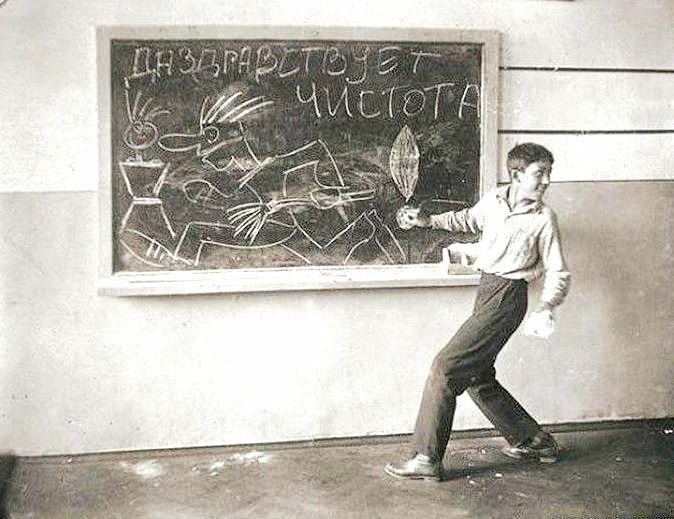 ДАЗДРАВСТВУЕТ
ЧИСТОТА